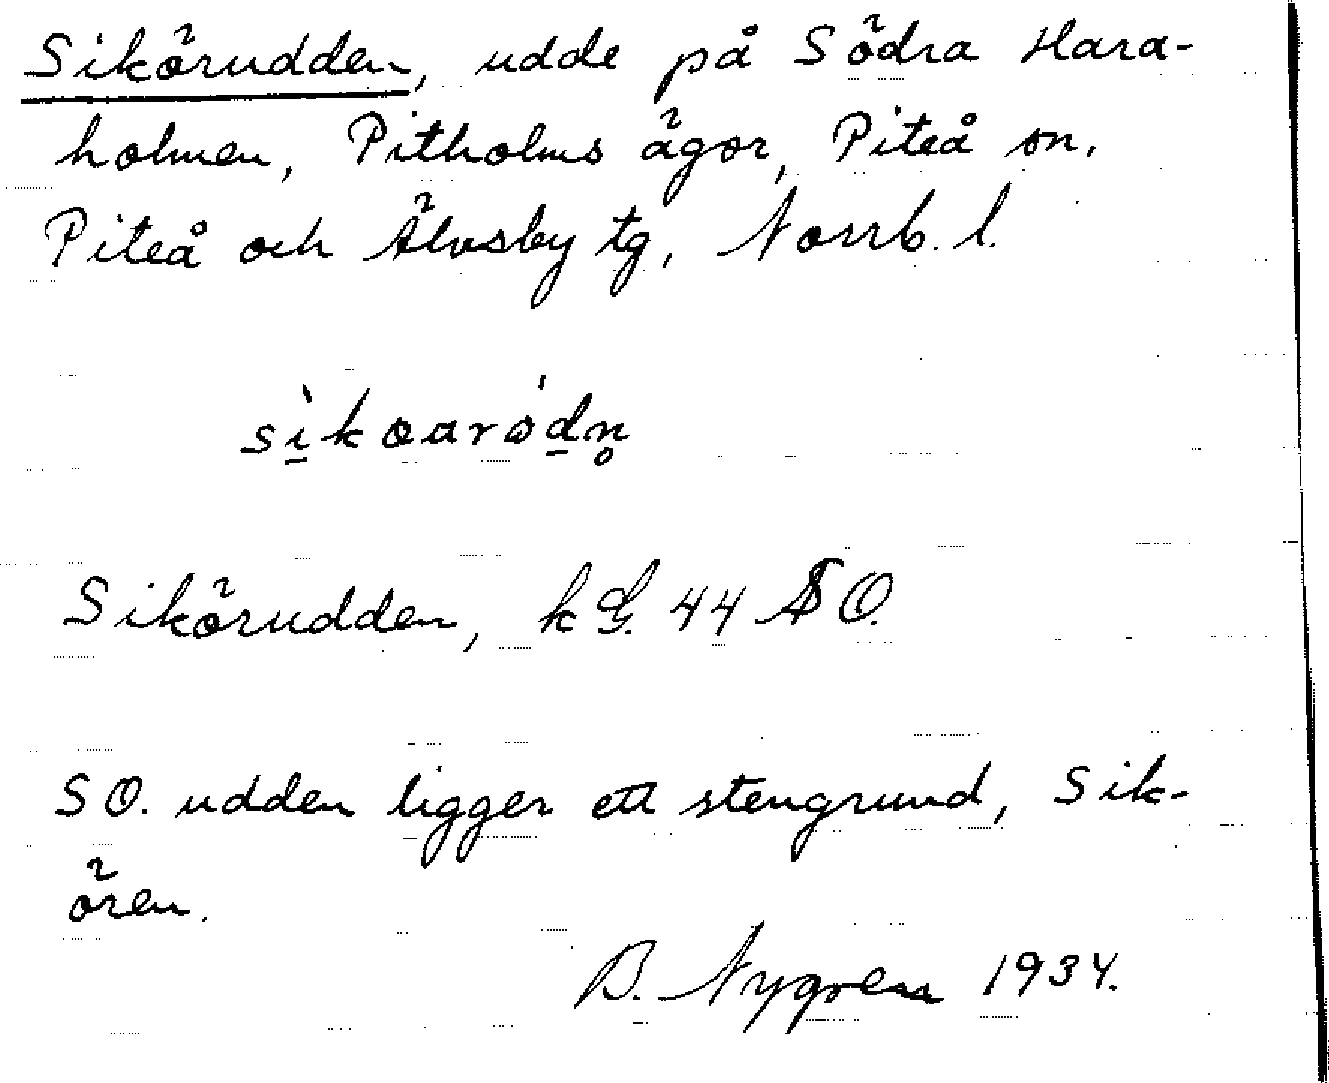 Sikörudden, udde på Södra Hara-
holmen, Pitholms ägor, Piteå sn,
Piteå och Älvsby tg, Norrb. l.
sìkoarödn̥
Sikörudden, kG. 44 SO.
SO. udden ligger ett stengrund, Sik-
ören.
B. Nygren 1934.